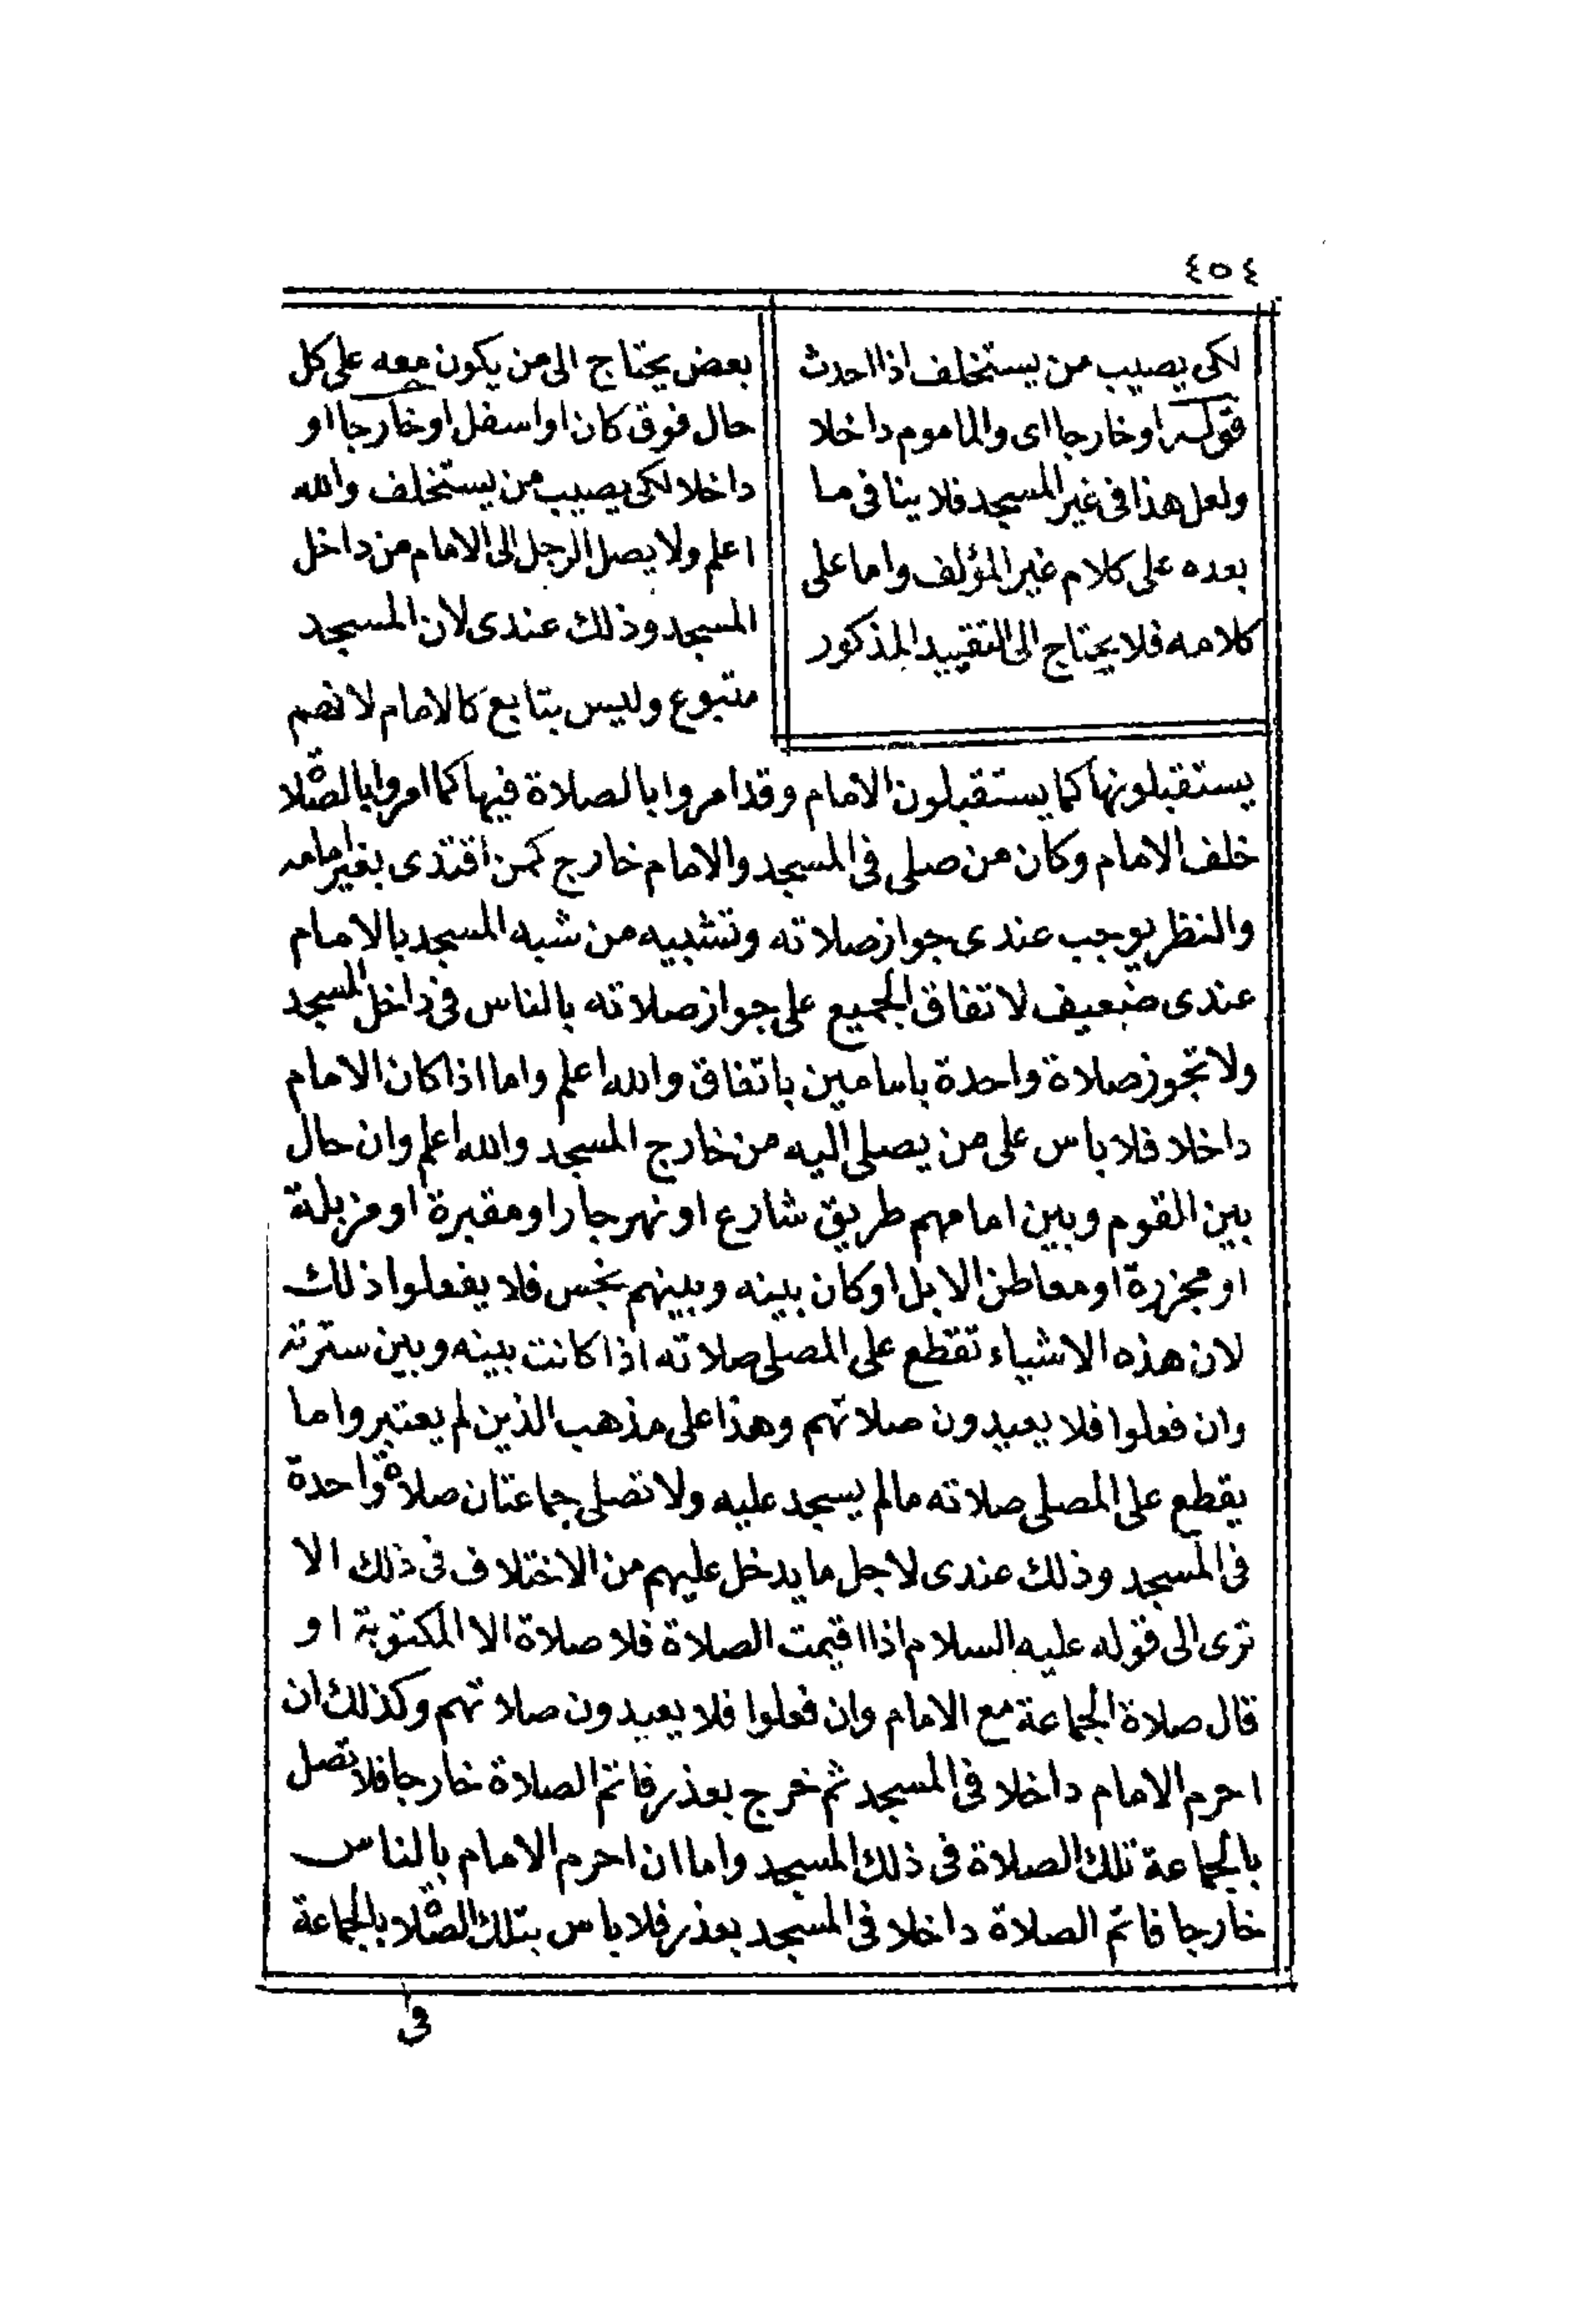 ٤٥٤
لكى يصيب من يستخلف اذا احدث
قوله او خارجا اى والماموم داخلا
ولعل هذا فى غير المسجد فلا ينافى ما
بعده على كلام غير المؤلف واما على
كلامه فلا يحتاج الى التقييد المذكور
بعض يحتاج الى من يكون معه على كل
حال فوق كان او اسفل او خارجا او
داخلا لكى يصيب من يستخلف والله
اعلم ولا يصل الرجل الى الامام من داخل
المسجد وذلك عندى لان المسجد
متبوع وليس بتابع كالامام لانهم
يستقبلونها كما يستقبلون الامام وقد امروا بالصلاة فيها كما امروا بالصلاة
خلف الامام وكان من صلى فى المسجد والامام خارج كمن اقتدى بغير امامه
والنظر يوجب عندى جواز صلاته وتشبيه من شبه المسجد بالامام
عندى ضعيف لاتفاق الجميع على جواز صلاته بالناس فى داخل المسجد
ولا تجوز صلاة واحدة بامامين باتفاق والله اعلم واما اذا كان الامام
داخلا فلا باس على من يصلى اليه من خارج المسجد والله اعلم وان حال
بين القوم وبين امامهم طريق شارع او نهر جار او مقبرة او مزبلة
او مجزرة او معاطن الابل او كان بينه وبينهم نجس فلا يفعلوا ذلك
لان هذه الاشياء تقطع على المصلى صلاته اذا كانت بينه وبين سترته
وان فعلوا فلا يعيدون صلاتهم وهذا على مذهب الذين لم يعتبروا ما
يقطع على المصلى صلاته ما لم يسجد عليه ولا تصلى جماعتان صلاة واحدة
فى المسجد وذلك عندى لاجل ما يدخل عليهم من الاختلاف فى ذلك الا
ترى الى قوله عليه السلام اذا اقيمت الصلاة فلا صلاة الا المكتوبة او
قال صلاة الجماعة مع الامام وان فعلوا فلا يعيدون صلاتهم وكذلك ان
احرم الامام داخلا فى المسجد ثم خرج بعذر فاتم الصلاة خارجا فلا تصل
بالجماعة تلك الصلاة فى ذلك المسجد واما ان احرم الامام بالناس
خارجا فاتم الصلاة داخلا فى المسجد بعذر فلا باس بتلك الصلاة بالجماعة
فى